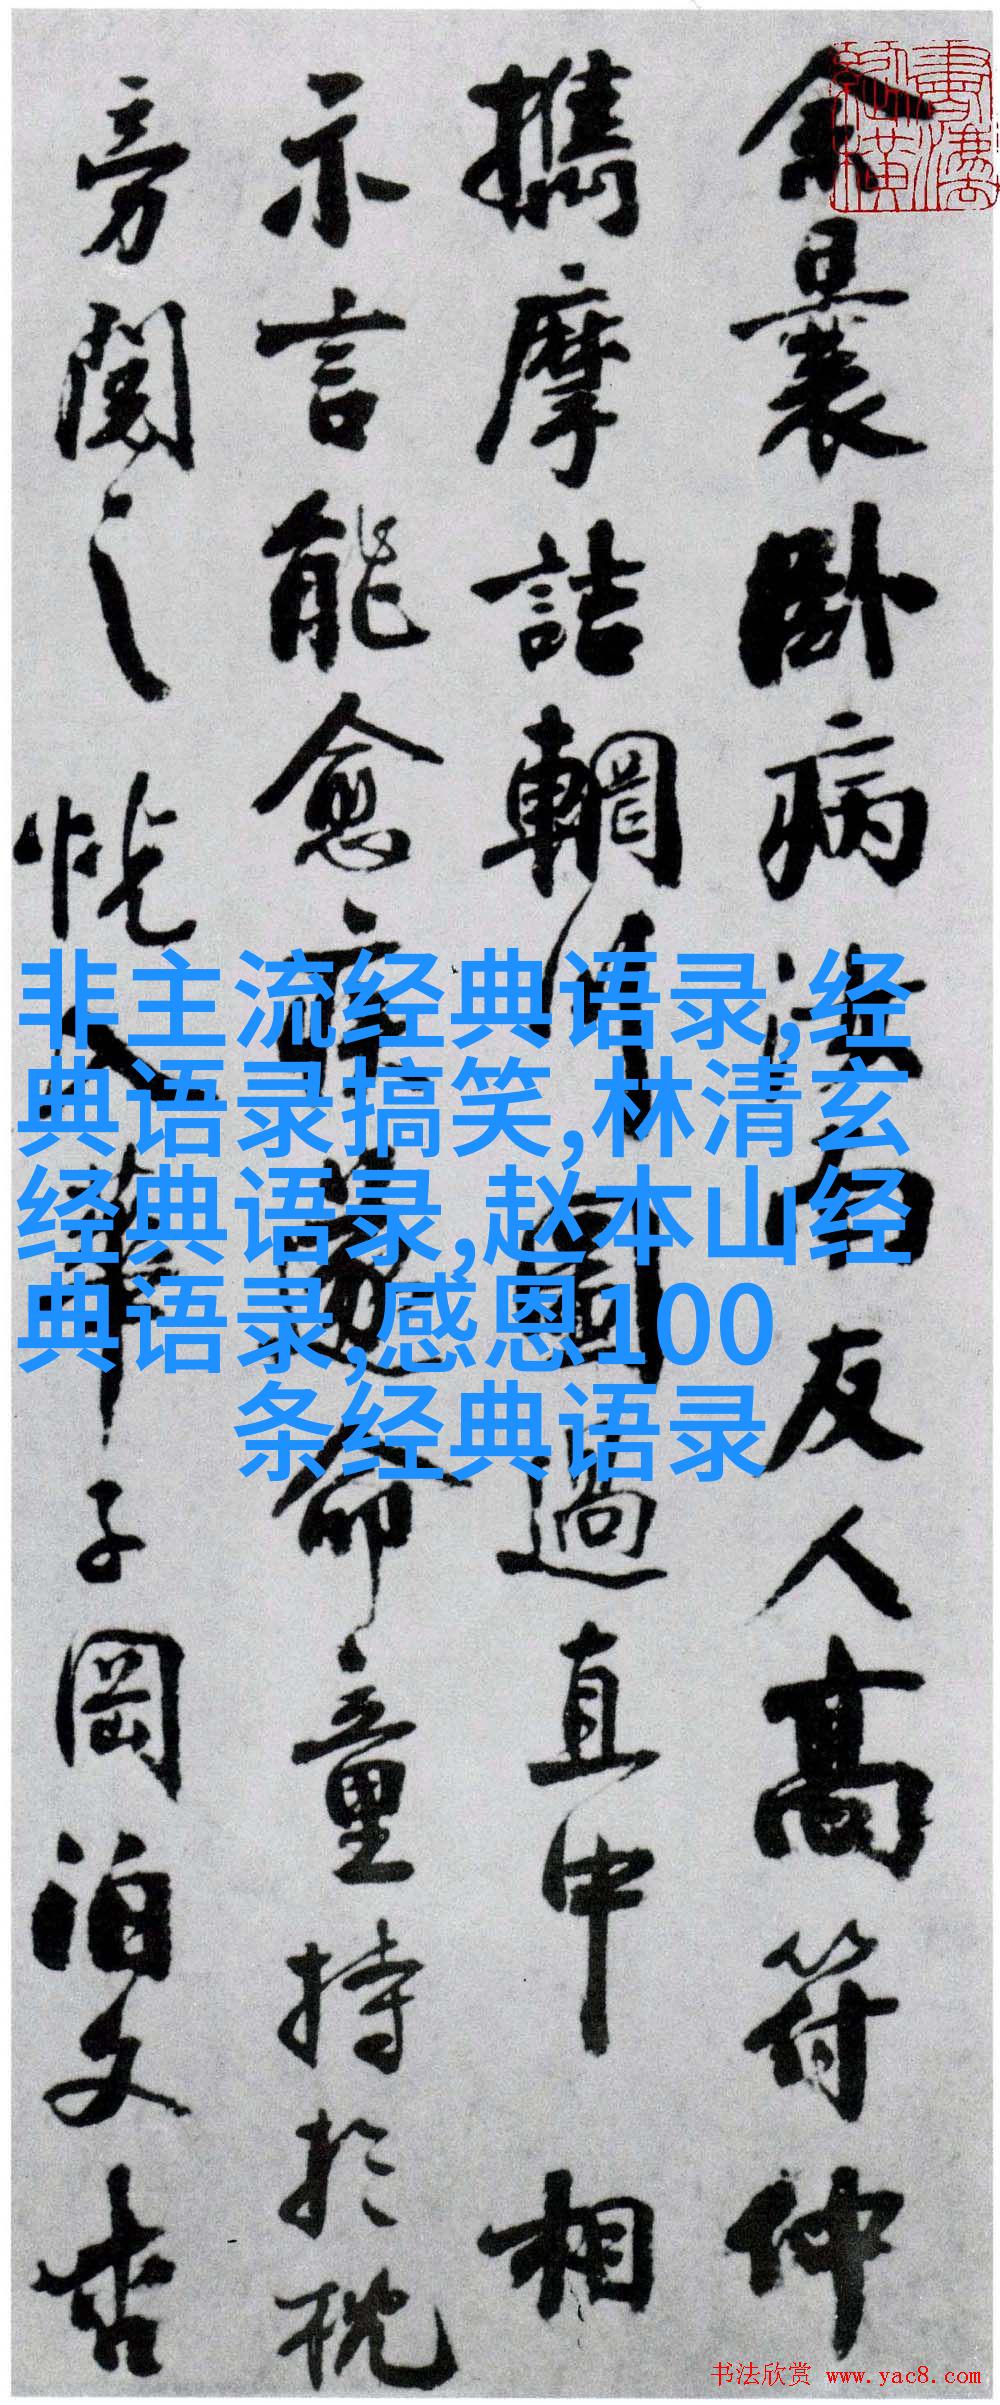 余曩卧病汝南友人高符仲
攜摩詰輞川圖過直中相
示言能愈疾遂命童持於枕
旁閱之恍入華子岡泊文杏
非主流经典语录,经
典语录搞笑,林清玄
经典语录,赵本山经
典语录,感恩100
条经典语录
书法欣赏 www.yac8.com